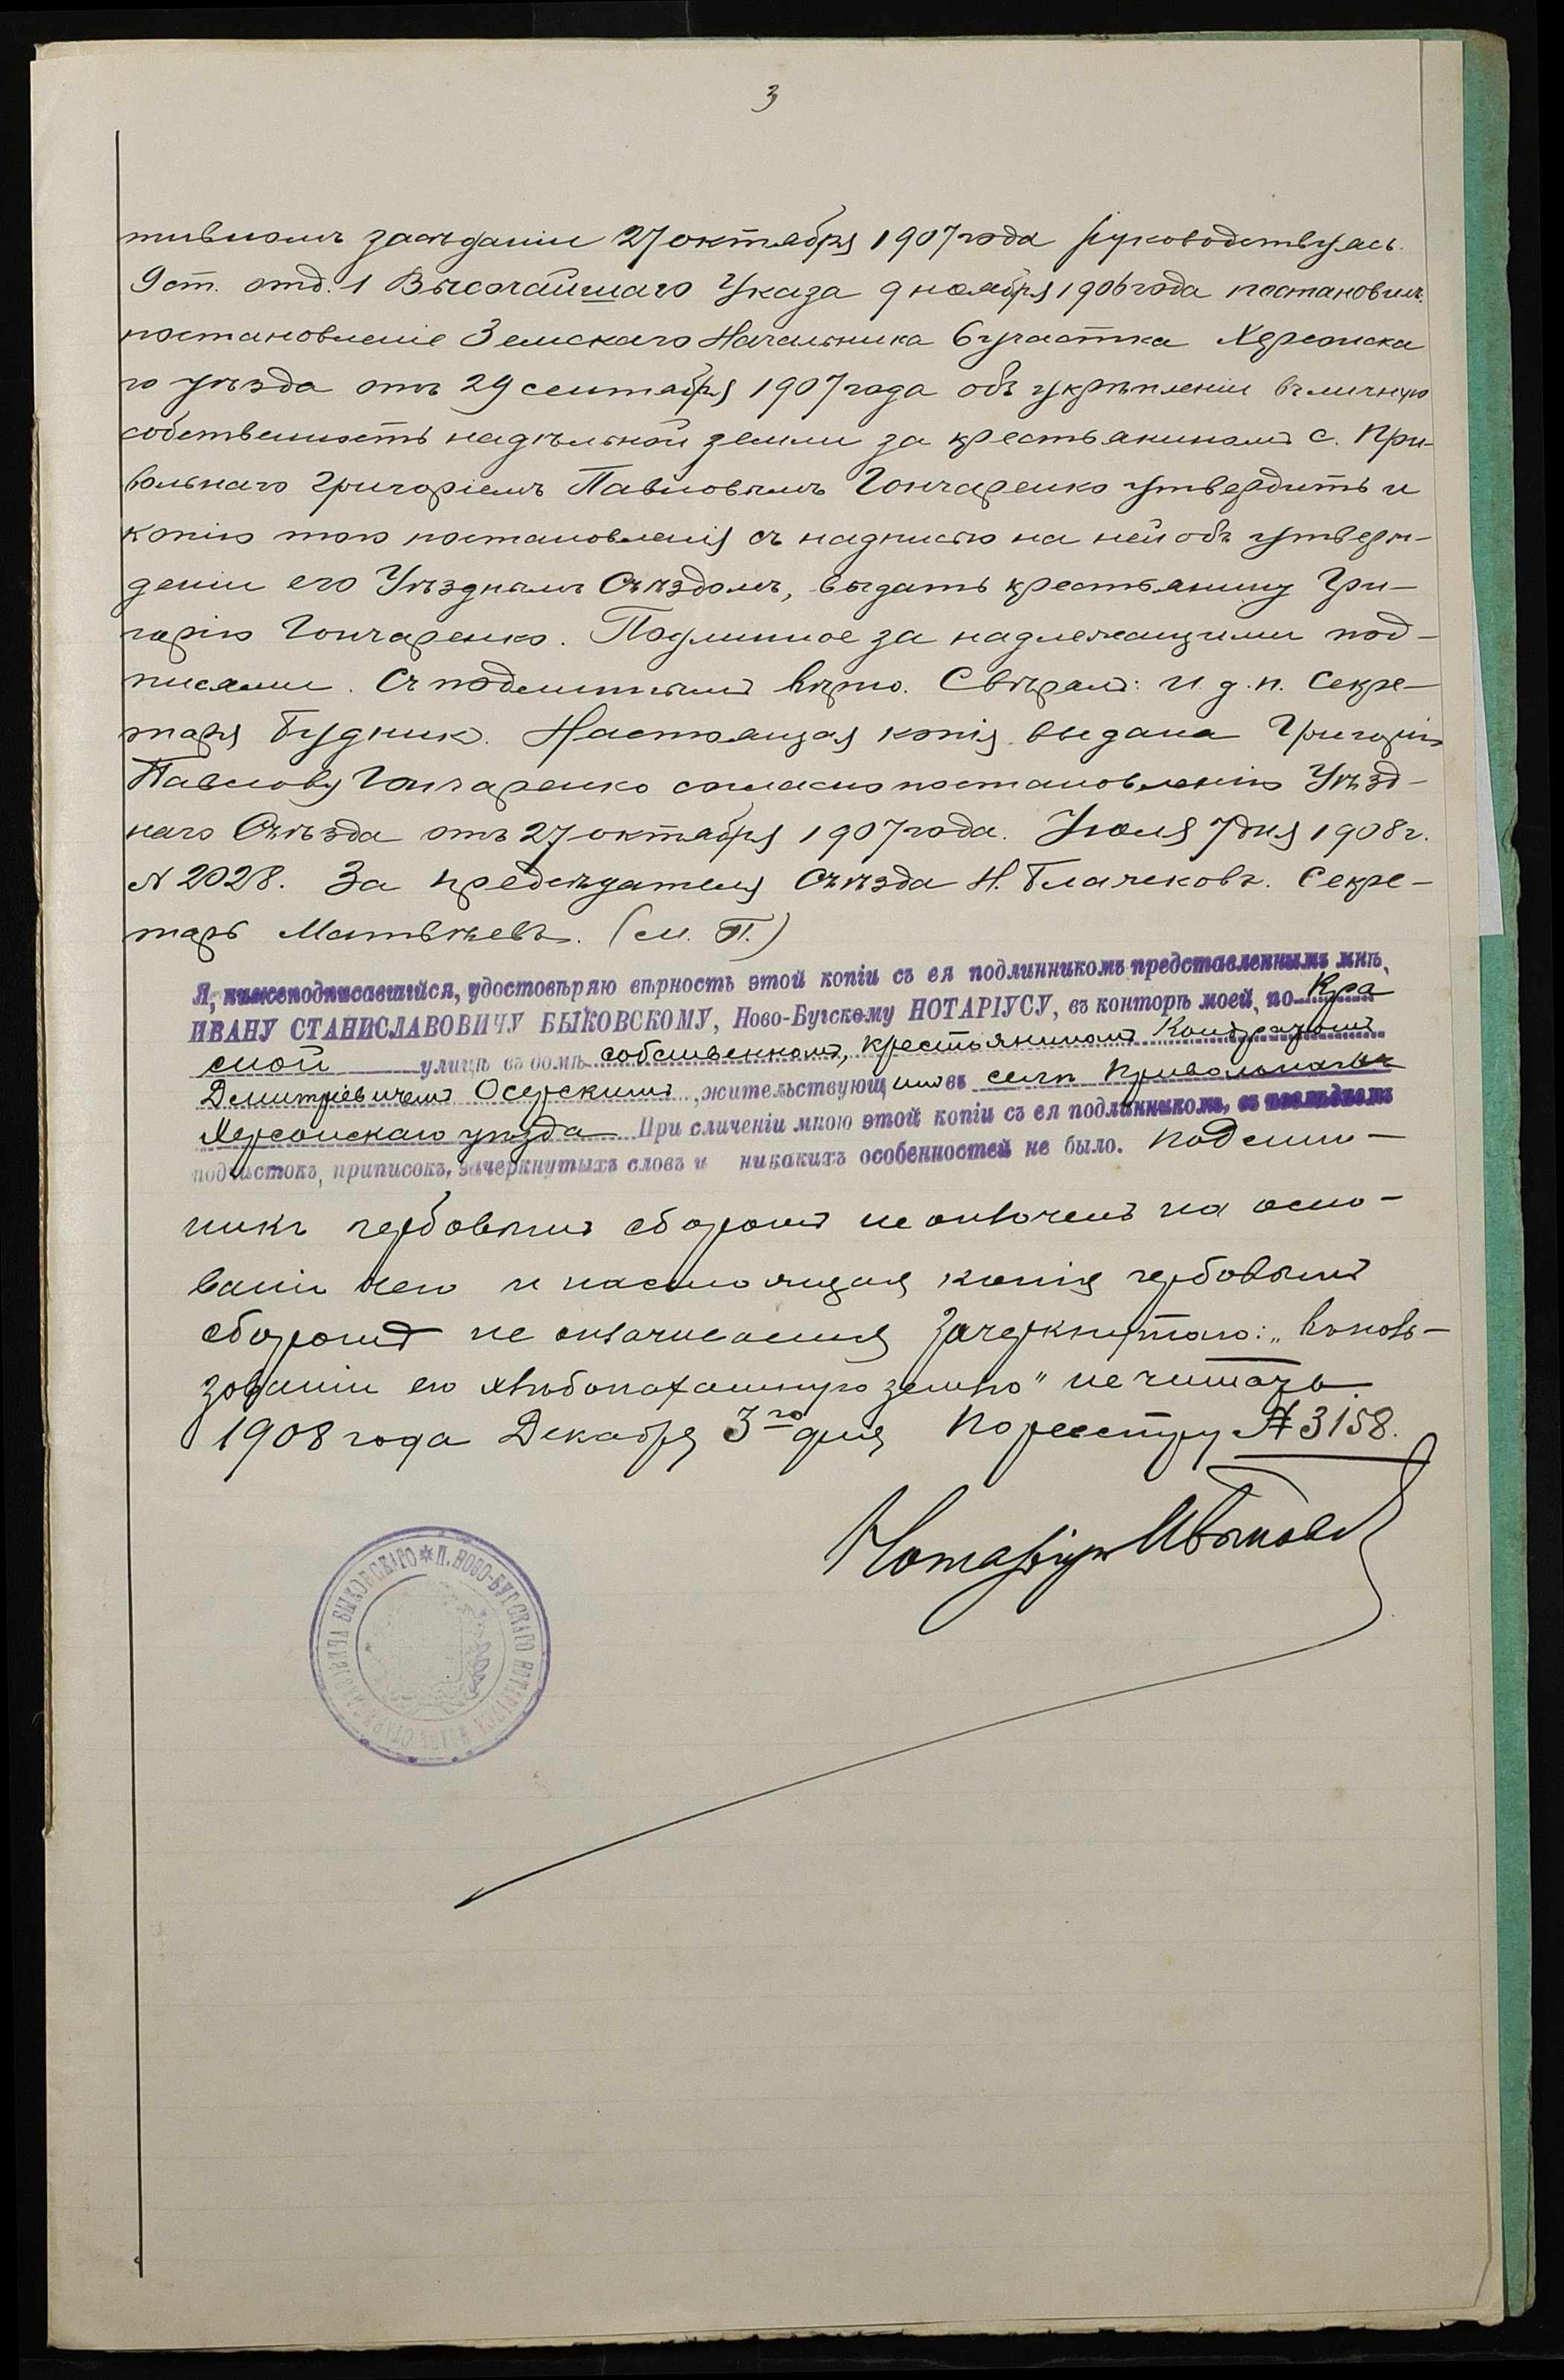 3
тивномъ засѣданіи 27 октября 1907 года руководствуясь
9 ст. отд. 1 Высочайшаго Указа 9 ноября 1906 года постановилъ:
постановленіе Земскаго Начальника 6 участка Херсонска
го уѣзда отъ 29 сентября 1907 года объ укрѣпленіи въ личную
собственность надѣльной земли за крестьяниномъ с. При-
вольнаго Григоріемъ Павловымъ Гончаренко утвердить и
копію того постановленія съ надписью на ней объ утверж-
деніи его Уѣзднымъ Съѣздомъ, выдать крестьянину Гри-
горію Гончаренко. Подлинное за надлежащими под-
писями. Съ подлиннымъ вѣрно. Свѣрялъ: И. д. п. Секре-
таря Будник. Настоящая копія выдана Григорію
Павлову Гончаренко согласно постановленію Уѣзд-
наго Съѣзда отъ 27 октября 1907 года. Іюля 7 дня 1908 г.
№ 2028. За предсѣдателя Съѣзда Н. Секре-
тарь Матвѣевъ. (М. П.)
Я, нижеподписавшійся, удостовѣряю вѣрность этой копіи съ ея подлинникомъ представленнымъ мнѣ,
ИВАНУ СТАНИСЛАВОВИЧУ БЫКОВСКОМУ, Ново-Бугскому НОТАРІУСУ, въ конторѣ моей, по Кра
сной улицѣ въ домѣ собственномъ, крестьяниномъ Кондратомъ
Дмитріевичемъ Осерскимъ, жительствующимъ въ селѣ Привольномъ
Херсонскаго уѣзда При сличеніи мною этой копіи съ ея подлинникомъ, въ послѣднемъ
подчистокъ, приписокъ, зачеркнутыхъ словъ и никакихъ особенностей не было. Подлин-
никъ гербовымъ сборомъ не оплоченъ на осно-
ваніи чего и настоящая копія гербовымъ
сборомъ не оплачивается Зачеркнутаго: „въ поль-
зованіи его хлѣбопахатную землю" не читать.
1908 года Декабря 3го дня По реестру № 3158.
Нотаріусъ ИБыковскій
* П. НОВО-БУГСКАГО НОТАРІУСА ИВАНА СТАНИСЛАВОВИЧА БЫКОВСКАГО